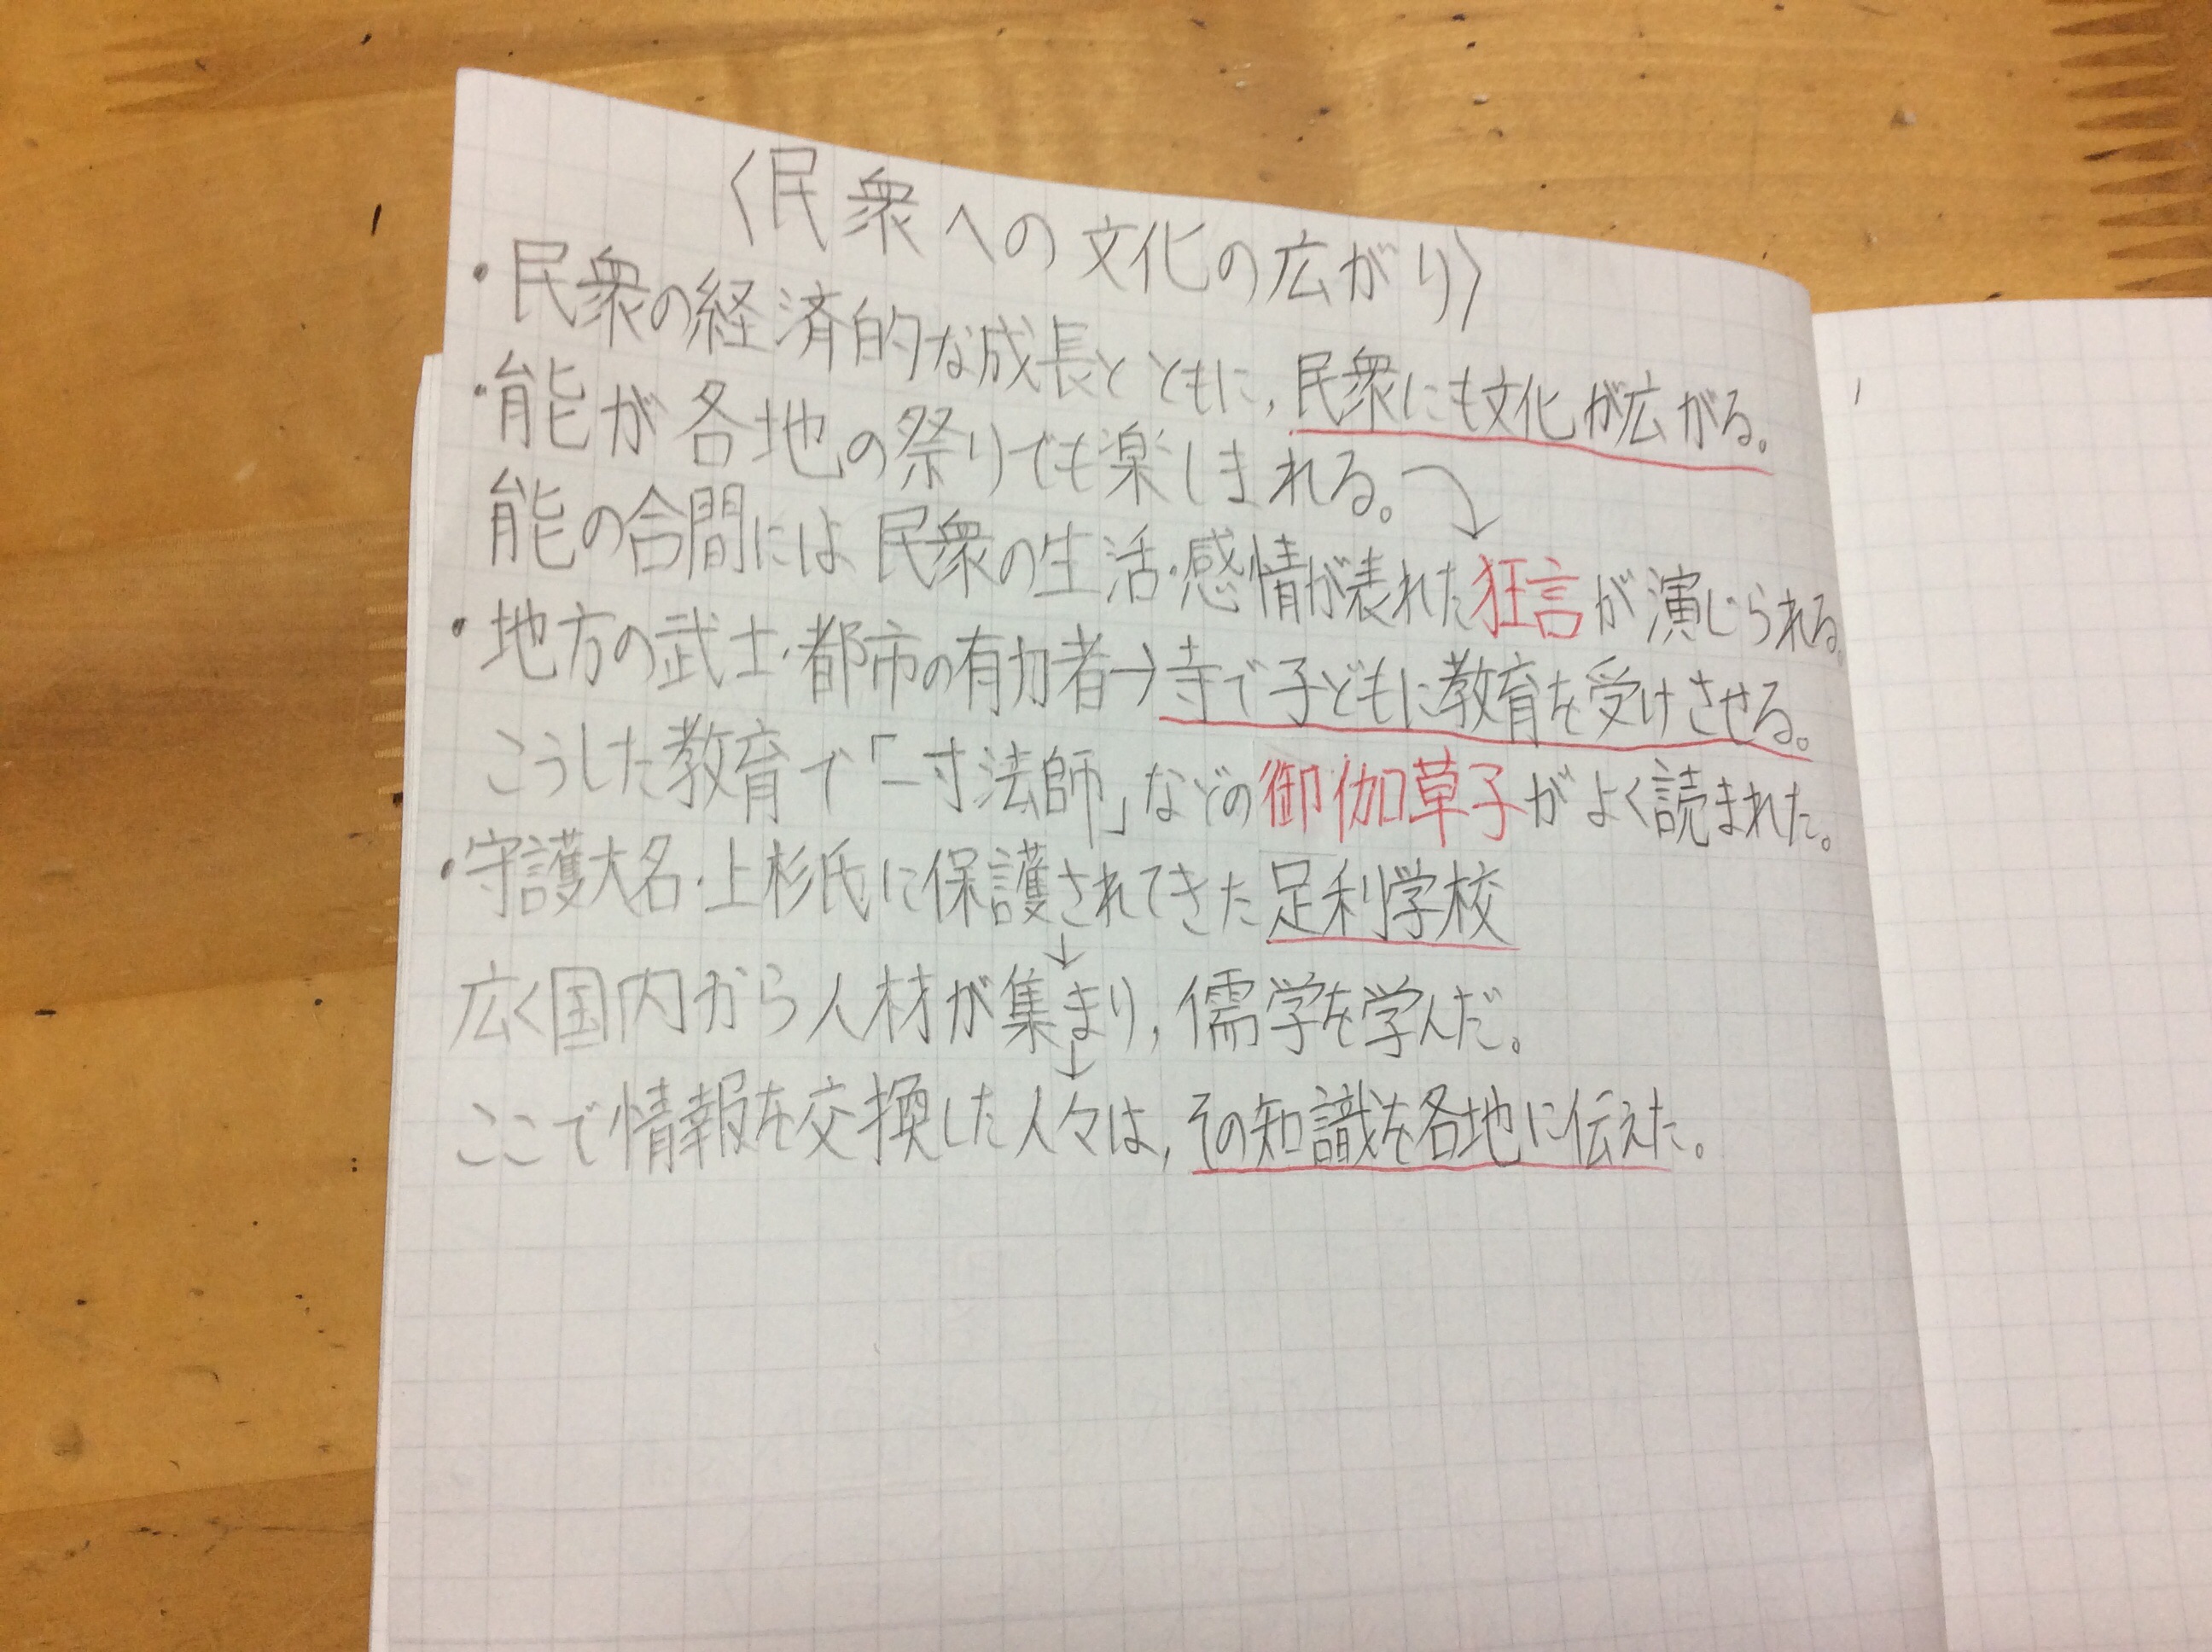 〈民衆への文化の広がり〉
・民衆の経済的な成長とともに,民衆にも文化が広がる。
・能が各地の祭りでも楽しまれる。⤵
能の合間には民衆の生活・感情が表れた狂言が演じられる。
・地方の武士・都市の有力者→寺で子どもに教育を受けさせる。
こうした教育で「一寸法師」などの御伽草子がよく読まれた。
・守護大名・上杉氏に保護されてきた足利学校
↓
広く国内から人材が集まり,儒学を学んだ。
↓
ここで情報を交換した人々は,その知識を各地に伝えた。